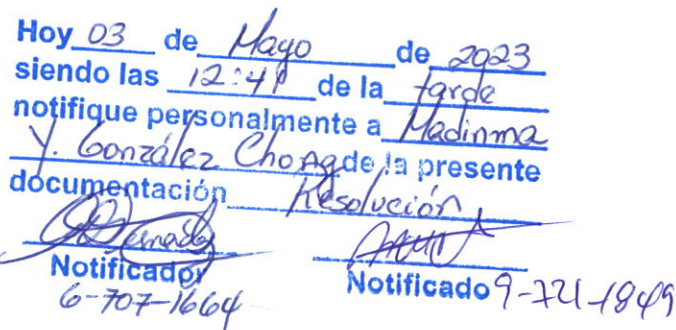 Hoy 03 de Mayo de 2023
siendo las 12:41 de la tarde
notifique personalmente a Madinma
Y. González Chong de la presente
documentación Resolución
Notificador Notificado 9-721-1849
6-707-1664